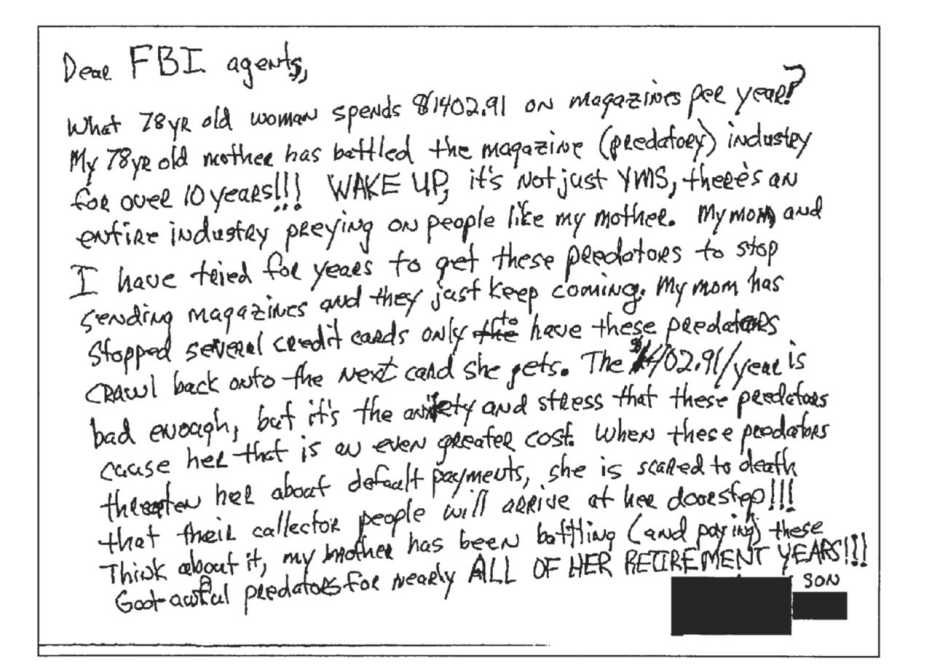 Dear FBI agents,
What 78yr old woman spends $1402.91 on magazines per year?
My 78yr old mother has battled the magazine (predatory) industry
for over 10 years!!! WAKE UP, it's not just YMS, there's an
entire industry preying on people like my mother. My mom and
I have tried for years to get these predators to stop
sending magazines and they just keep coming. My mom has
stopped several credit cards only to have these predators
crawl back onto the next card she gets. The $1402.91/year is
bad enough, but it's the anxiety and stress that these predators
cause her that is an even greater cost. When these predators
threaten her about default payments, she is scared to death
that their collector people will arrive at her doorstep!!!
Think about it, my mother has been battling (and paying) these
God-awful predators for nearly ALL OF HER RETIREMENT YEARS!!!
SON